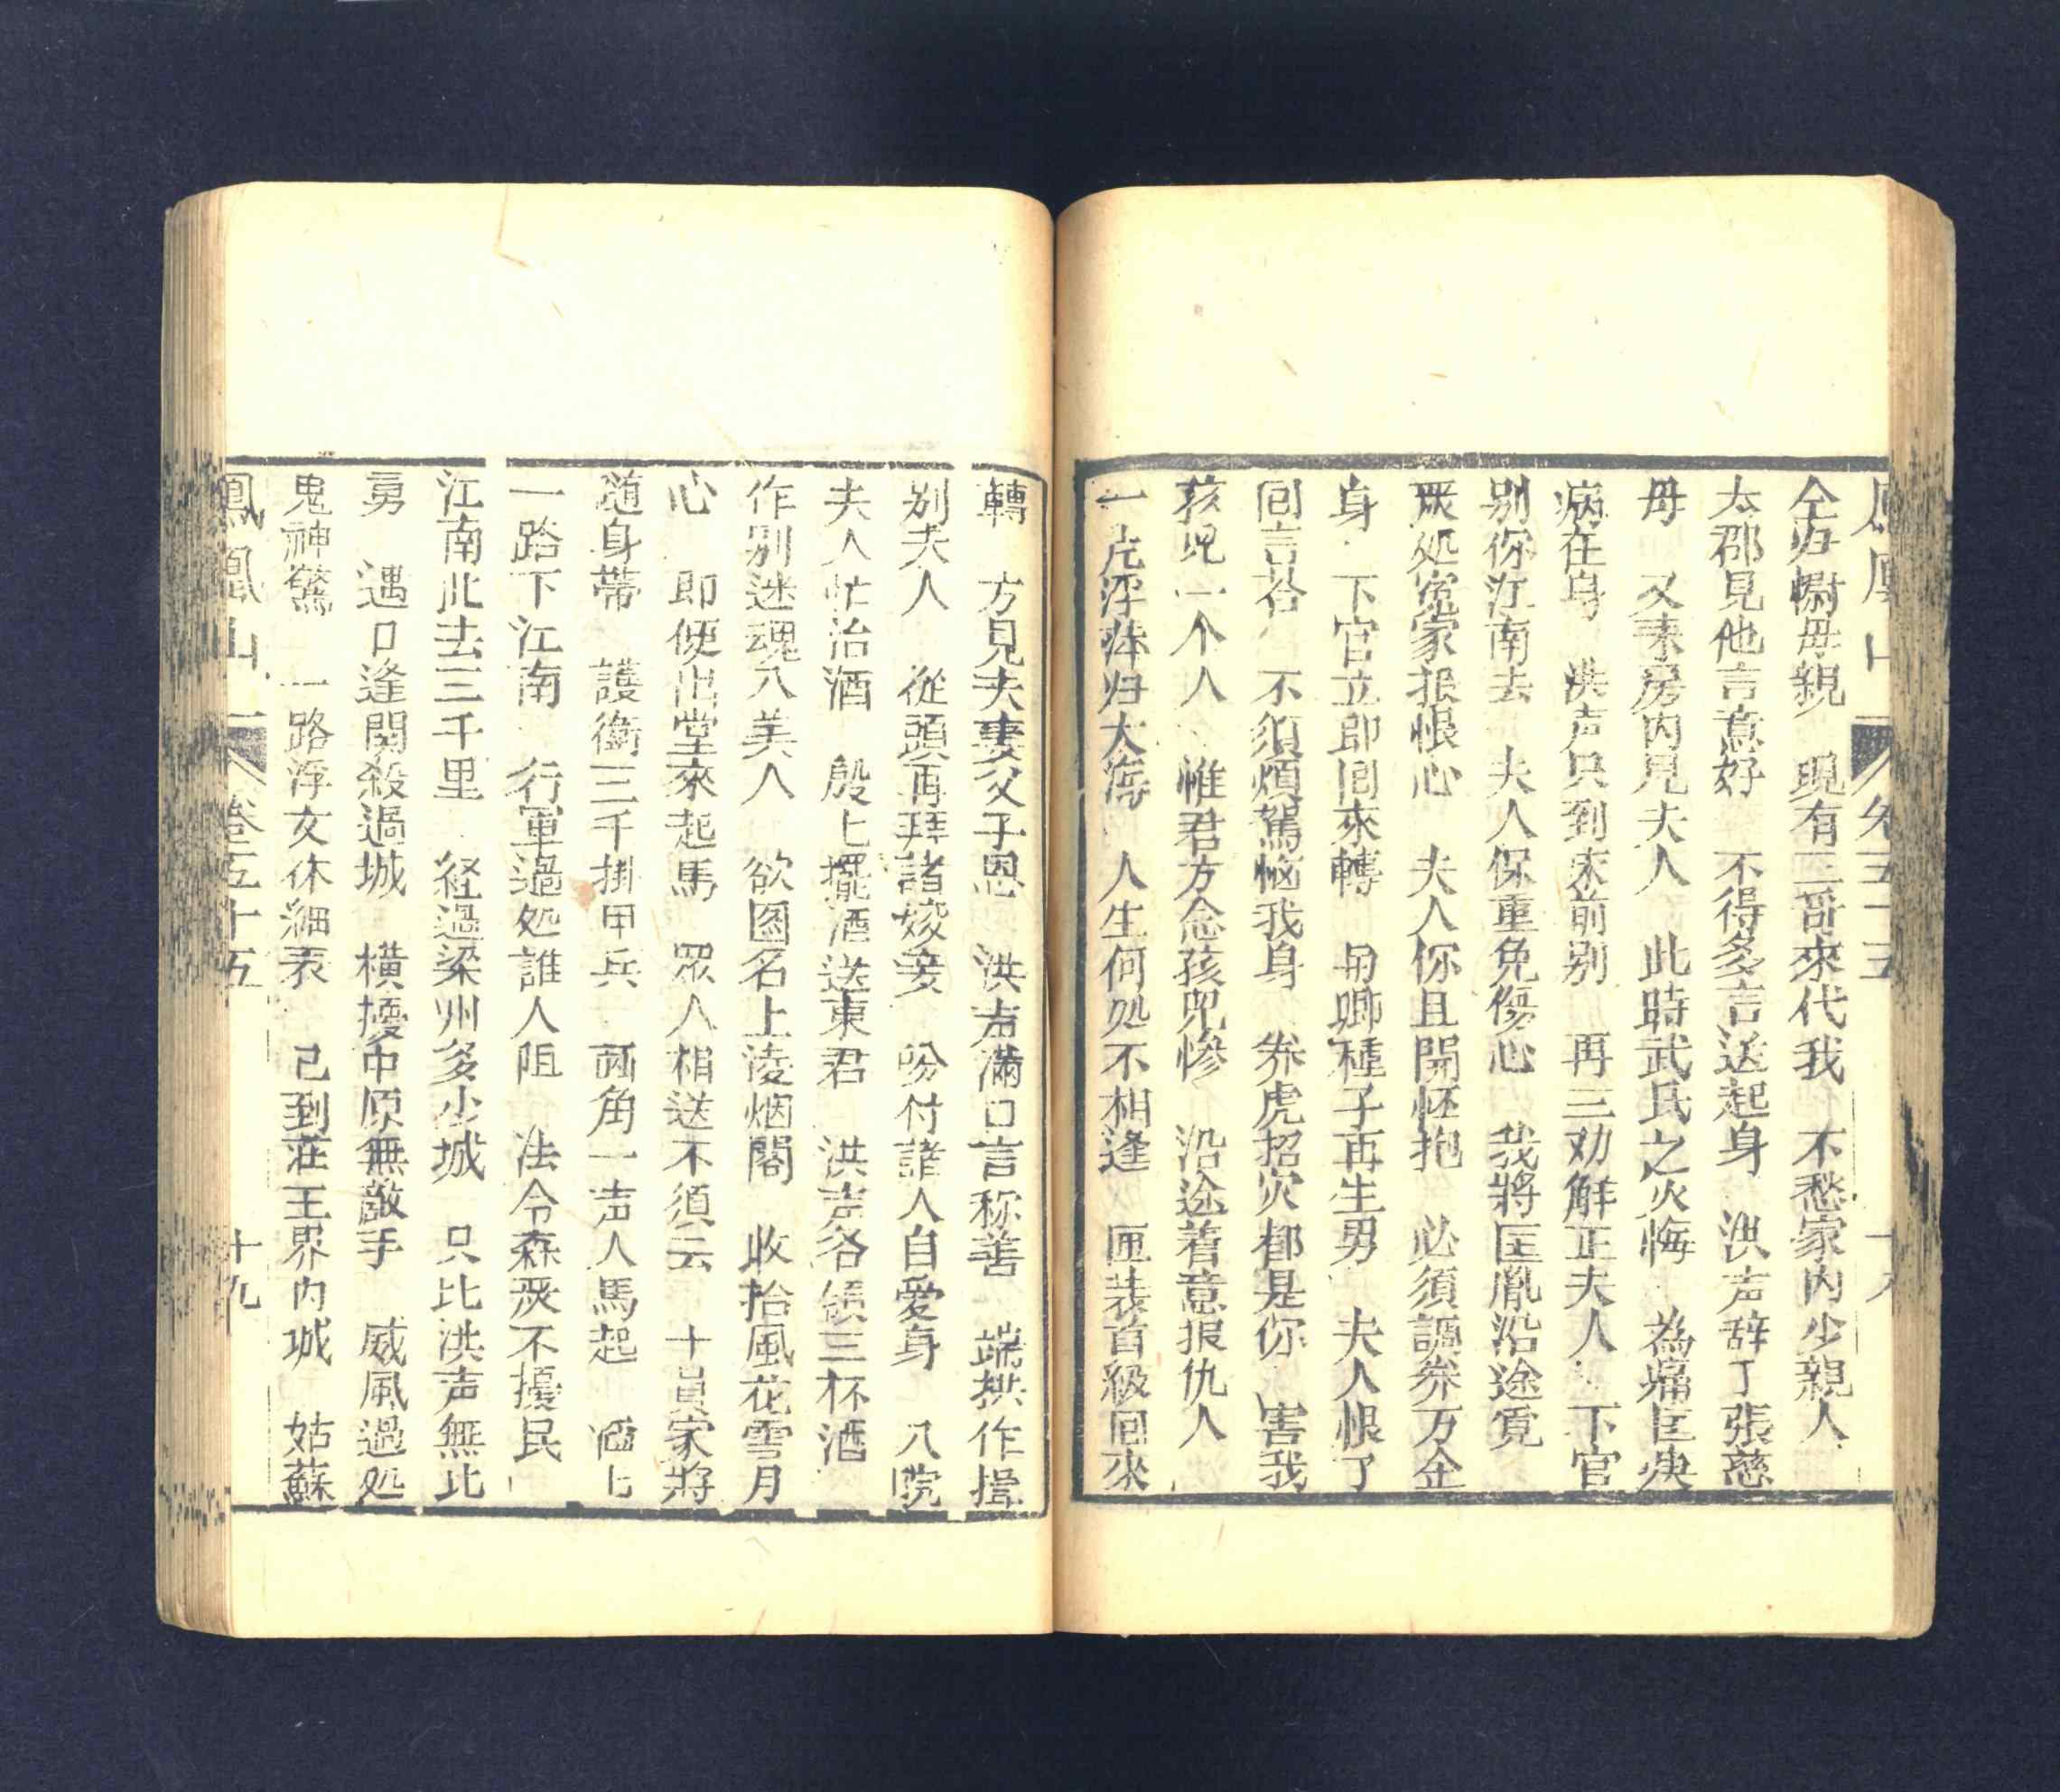 仝归慰母親　現有三哥來代我　不愁家内少親人
太郡見他言意好　不得多言送起身　洪声辞了張慈
母　又来房内見夫人　此時武氏之灾悔　為痛匡
病在身　洪声只到床前别　再三劝解正夫人　下官
别你江南去　夫人保重免傷心　我將匡胤沿途覓
冤家报恨心　夫人你且開怀抱　必須謂劵万金
身　下官立即囘來轉　與卿種子再生男　夫人恨了
囘言答　不須煩駕恼我身　养虎招灾都是你　害我
孩児一个人　惟君方念孩児惨　沿途着意报仇人
一片浮萍归大海　人生何处不相逢　匣装首級囘來
轉　方見夫妻父子恩　洪声滿口言称善　端拱作揖
别夫人　從頭再拜諸嫂妾　吩付諸人自愛身　八院
夫人忙治酒　殷上擺酒送東君　洪声各領三杯酒
作别迷魂八美人　欲图名上凌烟閣　收拾風花雪月
心　即便出堂來起馬　眾人相送不須云　十員家將
随身帶　護衛三千掛甲兵　画角一声人馬起　洒上
一路下江南　行軍過処誰人阻　法令森严不擾民
江南此去三千里　経過梁州多少城　只比洪声無比
勇　遇口逢関殺過城　横擾中原無敵手　威風過処
鬼神驚　一路浮文休細表　己到莊王界内城　姑蘇
鳳凰山　卷五十五　十九